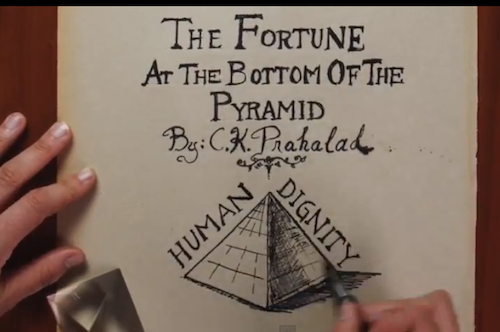 THE FORTUNE
AT THE BOTTOM OF THE
PYRAMID
By: C.K. Prahalad
HUMAN DIGNITY